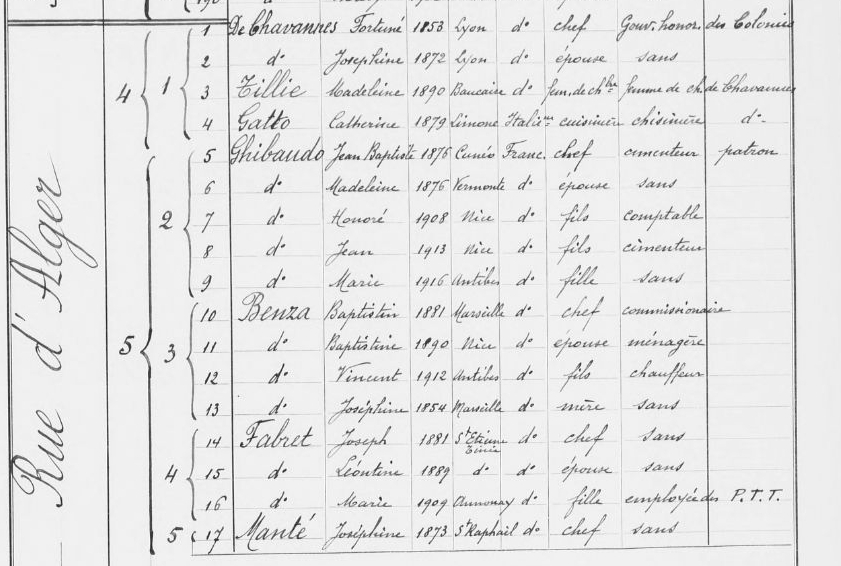 Rue d'Alger
4 1 1 De Chavannes Fortuné 1853 Lyon do chef Gouv. honor. des Colonies
2 do Joséphine 1872 Lyon do épouse sans
3 Tillie Madeleine 1890 Baucaire do fem. de chbre femme de ch. de Chavannes
4 Gatto Catherine 1879 Limone Italienne cuisinière do
5 2 5 Ghibaudo Jean Baptiste 1876 Cunéo Franc. chef cimenteur patron
6 do Madeleine 1876 Vermonte do épouse sans
7 do Honoré 1908 Nice do fils comptable
8 do Jean 1913 Nice do fils cimenteur
9 do Marie 1916 Antibes do fille sans
3 10 Benza Baptistin 1881 Marseille do chef commissionaire
11 do Baptistine 1890 Nice do épouse ménagère
12 do Vincent 1912 Antibes do fils chauffeur
13 do Joséphine 1854 Marseille do mère sans
4 14 Fabret Joseph 1881 St Etienne Tinée do chef sans
15 do Léontine 1889 do do épouse sans
16 do Marie 1909 Annonay do fille employée des P.T.T.
5 17 Manté Joséphine 1873 St Raphaël do chef sans